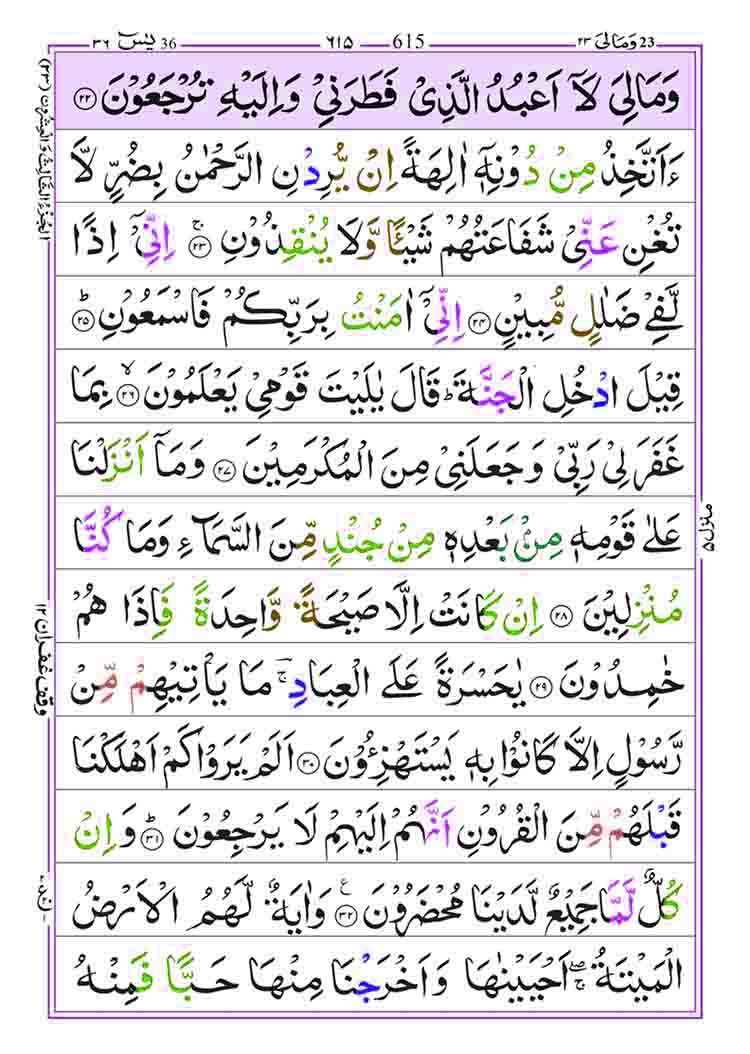 36 يٰسٓ ٣٦
615 ٦١٥
23 وَمَالِیَ ٢٣
وَمَالِیَ لَاۤ اَعْبُدُ الَّذِیْ فَطَرَنِیْ وَاِلَیْهِ تُرْجَعُوْنَ ﴿٢٢﴾
ءَاَتَّخِذُ مِنْ دُوْنِهٖۤ اٰلِهَةً اِنْ یُّرِدْنِ الرَّحْمٰنُ بِضُرٍّ لَّا
تُغْنِ عَنِّیْ شَفَاعَتُهُمْ شَیْـًٔا وَّلَا یُنْقِذُوْنِ ۚ ﴿٢٣﴾ اِنِّیْۤ اِذًا
لَّفِیْ ضَلٰلٍ مُّبِیْنٍ ﴿٢٤﴾ اِنِّیْۤ اٰمَنْتُ بِرَبِّكُمْ فَاسْمَعُوْنِ ؕ ﴿٢٥﴾
قِیْلَ ادْخُلِ الْجَنَّةَ ؕ قَالَ یٰلَیْتَ قَوْمِیْ یَعْلَمُوْنَ ۙ ﴿٢٦﴾ بِمَا
غَفَرَ لِیْ رَبِّیْ وَجَعَلَنِیْ مِنَ الْمُكْرَمِیْنَ ﴿٢٧﴾ وَمَاۤ اَنْزَلْنَا
عَلٰی قَوْمِهٖ مِنْۢ بَعْدِهٖ مِنْ جُنْدٍ مِّنَ السَّمَآءِ وَمَا كُنَّا
مُنْزِلِیْنَ ﴿٢٨﴾ اِنْ كَانَتْ اِلَّا صَیْحَةً وَّاحِدَةً فَاِذَا هُمْ
خٰمِدُوْنَ ﴿٢٩﴾ یٰحَسْرَةً عَلَی الْعِبَادِ ۚ مَا یَاْتِیْهِمْ مِّنْ
رَّسُوْلٍ اِلَّا كَانُوْا بِهٖ یَسْتَهْزِءُوْنَ ﴿٣٠﴾ اَلَمْ یَرَوْا كَمْ اَهْلَكْنَا
قَبْلَهُمْ مِّنَ الْقُرُوْنِ اَنَّهُمْ اِلَیْهِمْ لَا یَرْجِعُوْنَ ؕ ﴿٣١﴾ وَاِنْ
كُلٌّ لَّمَّا جَمِیْعٌ لَّدَیْنَا مُحْضَرُوْنَ ﴿٣٢﴾ ع وَاٰیَةٌ لَّهُمُ الْاَرْضُ
الْمَیْتَةُ ۖۚ اَحْیَیْنٰهَا وَاَخْرَجْنَا مِنْهَا حَبًّا فَمِنْهُ
اَلْجُزْءُ الثَّالِثُ وَالْعِشْرُوْنَ (٢٣)
وقف غفران ١٢
منزل ٥